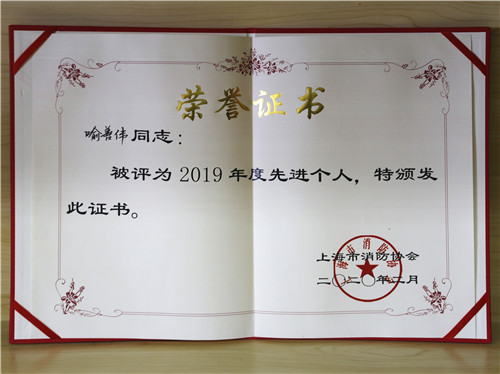 荣誉证书
喻善伟同志：
被评为2019年度先进个人，特颁发
此证书。
上海市消防协会
二〇二〇年二月